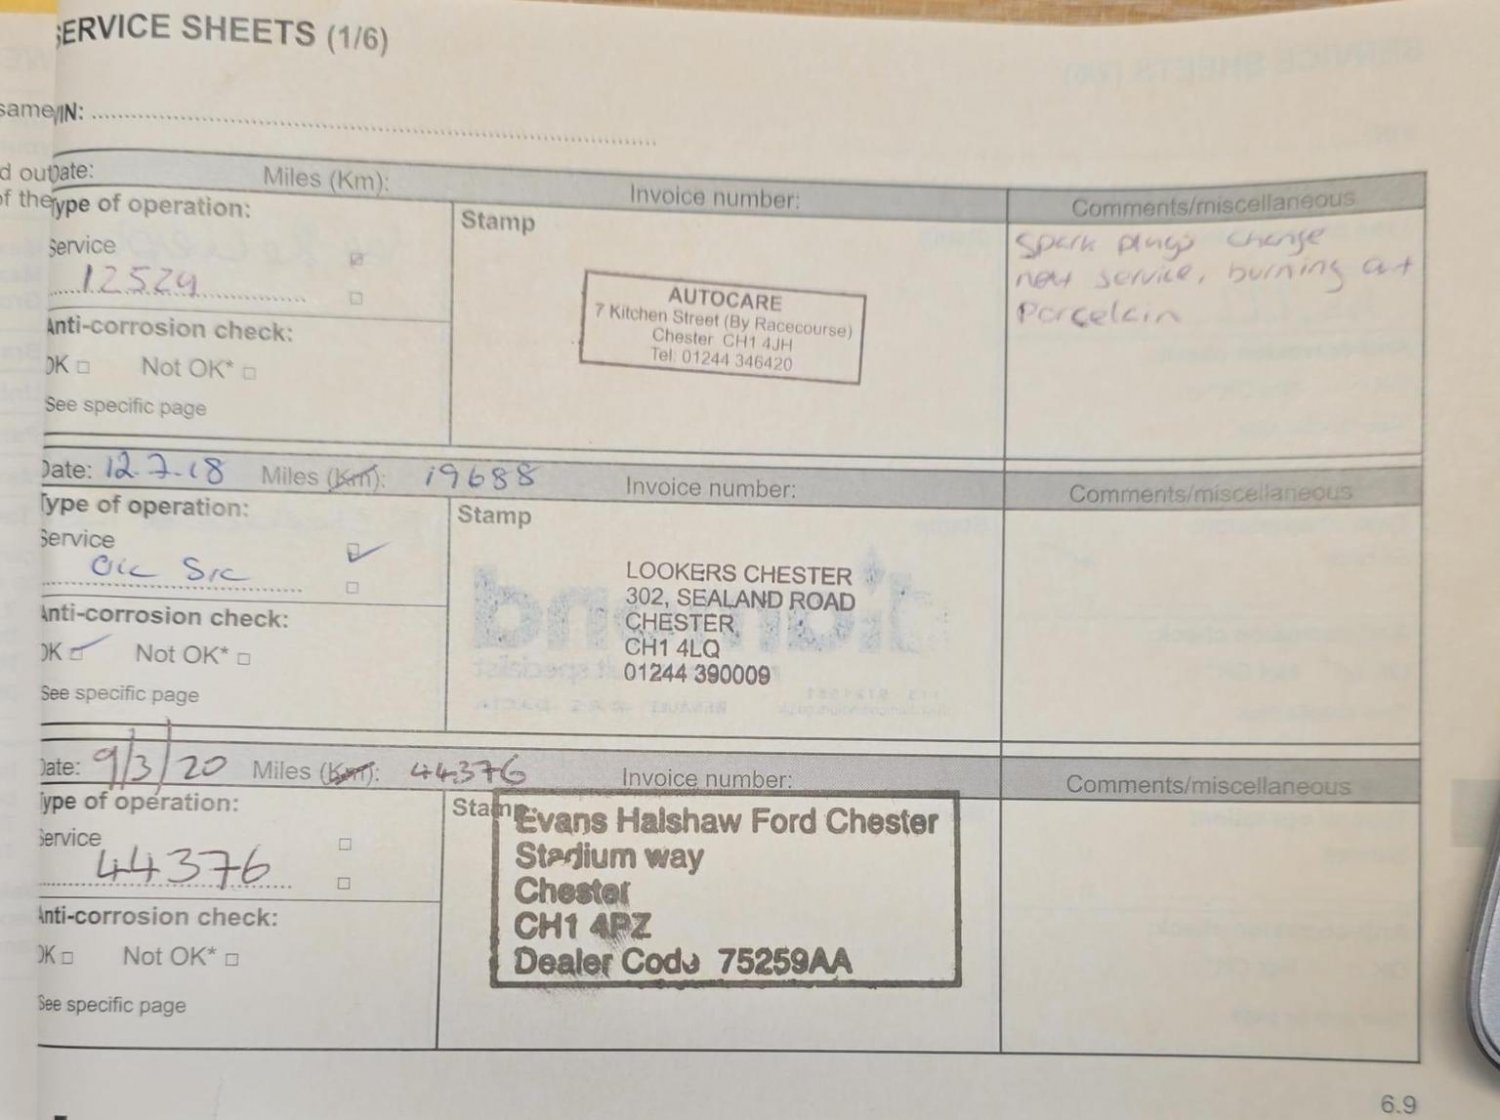 SERVICE SHEETS (1/6)
same
VIN:
d out
of the
Date: Miles (Km): Invoice number: Comments/miscellaneous
Type of operation:
Service
12524
Anti-corrosion check:
OK Not OK*
See specific page
Stamp
AUTOCARE
7 Kitchen Street (By Racecourse)
Chester CH1 4JH
Tel: 01244 346420
Spark plugs change
next service, burning out
Porcelain
Date: 12.7.18 Miles (Km): 19688 Invoice number: Comments/miscellaneous
Type of operation:
Service
Oil Src
Anti-corrosion check:
OK Not OK*
See specific page
Stamp
LOOKERS CHESTER
302, SEALAND ROAD
CHESTER
CH1 4LQ
01244 390009
Date: 9/3/20 Miles (Km): 44376 Invoice number: Comments/miscellaneous
Type of operation:
Service
44376
Anti-corrosion check:
OK Not OK*
See specific page
Stamp
Evans Halshaw Ford Chester
Stadium way
Chester
CH1 4PZ
Dealer Code 75259AA
6.9